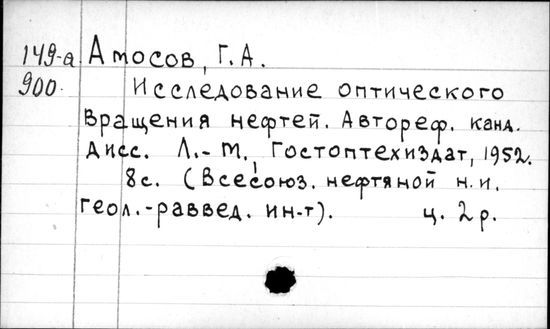 149-а Амосов, Г.А.
900. Исследование оптического
вращения нефтей. Автореф. канд.
дисс. Л.-М., Гостоптехиздат, 1952.
8с. (Всесоюз. нефтяной н.и.
геол.-раввед. ин-т). ц. 2р.